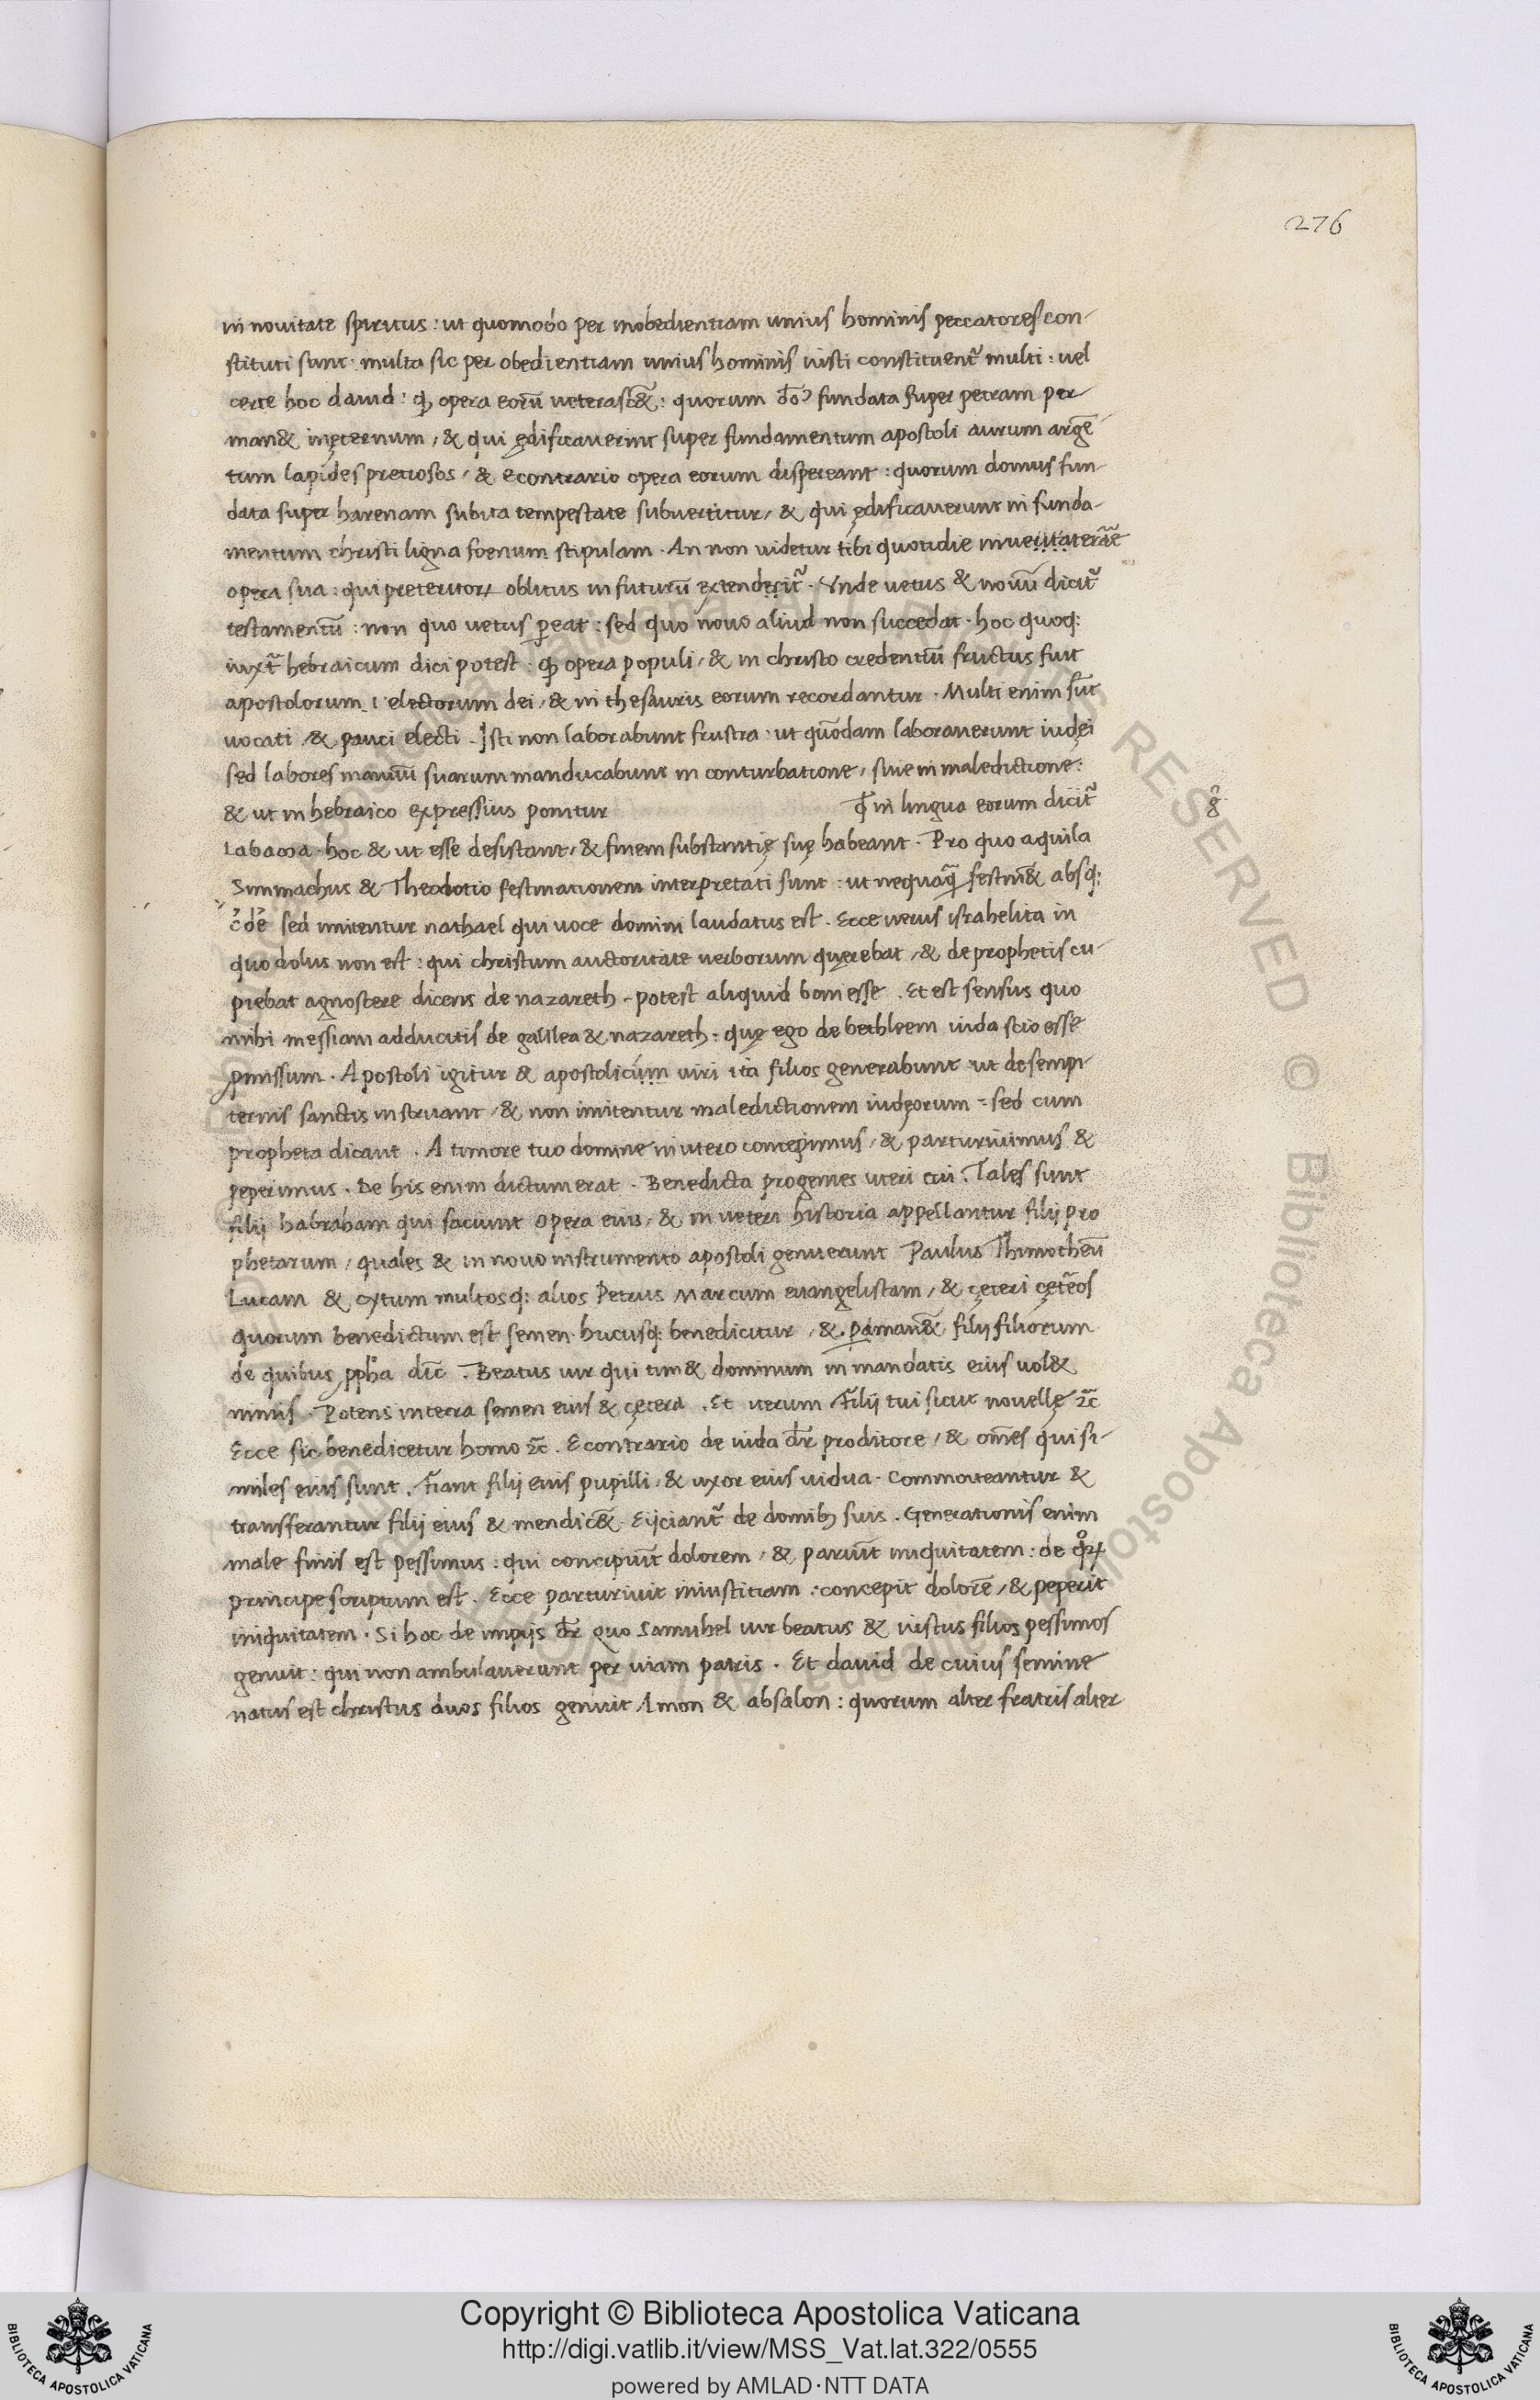 276
in nouitate spiritus : ut quomodo per inobedientiam unius hominis peccatores con-
stituti sunt · multa sic per obedientiam unius hominis iusti constituent᷑ multi : uel
certe hoc dauid : ꝙ opera eorū veterasc&̄ : quorum dō fundata super petram per
man& inęternum / & qui ędificauerint super fundamentum apostoli aurum argē
tum lapides pretiosos / & econtrario opera eorum dispereant : quorum domus fun-
data super harenam subita tempestate subuertitur / & qui ędificauerunt in funda-
mentum christi ligna foenum stipulam · An non uidetur tibi quotidie
opera sua : qui preteritoꝝ oblitus in futurū extenderit᷑ · Vnde uetus & nouū dicit᷑
testamentū : non quo uetus ꝑeat : sed quo nouo aliud non succedat · hoc quoq:
iuxt᷑ hebraicum dici potest · ꝙ opera populi / & in christo credentiū fructus fuit
apostolorum · i electorum dei / & in thesauris eorum recordantur · Multi enim sūt
uocati / & pauci electi · Isti non laborabunt frustra · ut quōdam laborauerunt iudęi
sed labores manuū suarum manducabunt in conturbatione / siue in maledictione :
& ut in hebraico expressius ponitur q̄ in lingua eorum dicit᷑
ĝ
Labaoa · hoc & ut esse desistant / & finem substantię suę habeant · Pro quo aquila
Simmachus & Theodotio festinationem interpretati sunt : ut nequaq̄ festin&̄ absq:
sed imitentur nathael qui uoce domini laudatus est · Ecce uerus israhelita in
quo dolus non est : qui christum auctoritate uerborum quęrebat / & de prophetis cu-
piebat agnoscere dicens de nazareth · potest aliquid boni esse · Et est sensus quo
mihi messiam adducitis de galilea & nazareth : quę ego de bethleem iuda scio esse
pmissum · Apostoli igitur & apostolicum uiri ita filios generabunt ut de sempi-
ternis sanctis instruant / & non imitentur maledictionem iudęorum : sed cum
propheta dicant · A timore tuo domine in utero concepimus / & parturiuimus &
peperimus · De his enim dictum erat · Benedicta progenies uteri tui · Tales sunt
filij habraham qui faciunt opera eius / & in ueteri historia appellantur filij pro
phetarum / quales & in nouo instrumento apostoli genuerunt Paulus Thimotheū
Lucam & tytum multosq: alios Petrus Marcum euangelistam / & cęteri cętēos
quorum benedictum est semen · hucusq: benedicitur / & ꝑman&̄ filij filiorum
de quibus ꝓpha dic̄ · Beatus uir qui tim& dominum in mandatis eius uol&
nimis · Potens in terra semen eius & cętera · Et iterum Filij tui sicut nouellę ⁊c̄
Ecce sic benedicetur homo ⁊c̄ · Econtrario de iuda dr̄ proditore / & om̄es qui si-
miles eius sunt · Fiant filij eius pupilli / & uxor eius uidua · Commoueantur &
transferantur filij eius & mendic&̄ · Eijciant᷑ de domibꝫ suis · Generationis enim
male finis est pessimus : qui concipiūt dolorem / & pariūt iniquitatem : de qͦꝝ
principe scriptum est · Ecce parturiuit iniustitiam : concepit dolorē / & peperit
iniquitatem · Si hoc de impijs dr̄ quo Samuhel uir beatus & iustus filios pessimos
genuit : qui non ambulauerunt per uiam patris · Et dauid de cuius semine
natus est christus duos filios genuit Amon & absalon : quorum alter fratris alter
Copyright © Biblioteca Apostolica Vaticana
http://digi.vatlib.it/view/MSS_Vat.lat.322/0555
powered by AMLAD·NTT DATA
BIBLIOTECA APOSTOLICA VATICANA
BIBLIOTECA APOSTOLICA VATICANA